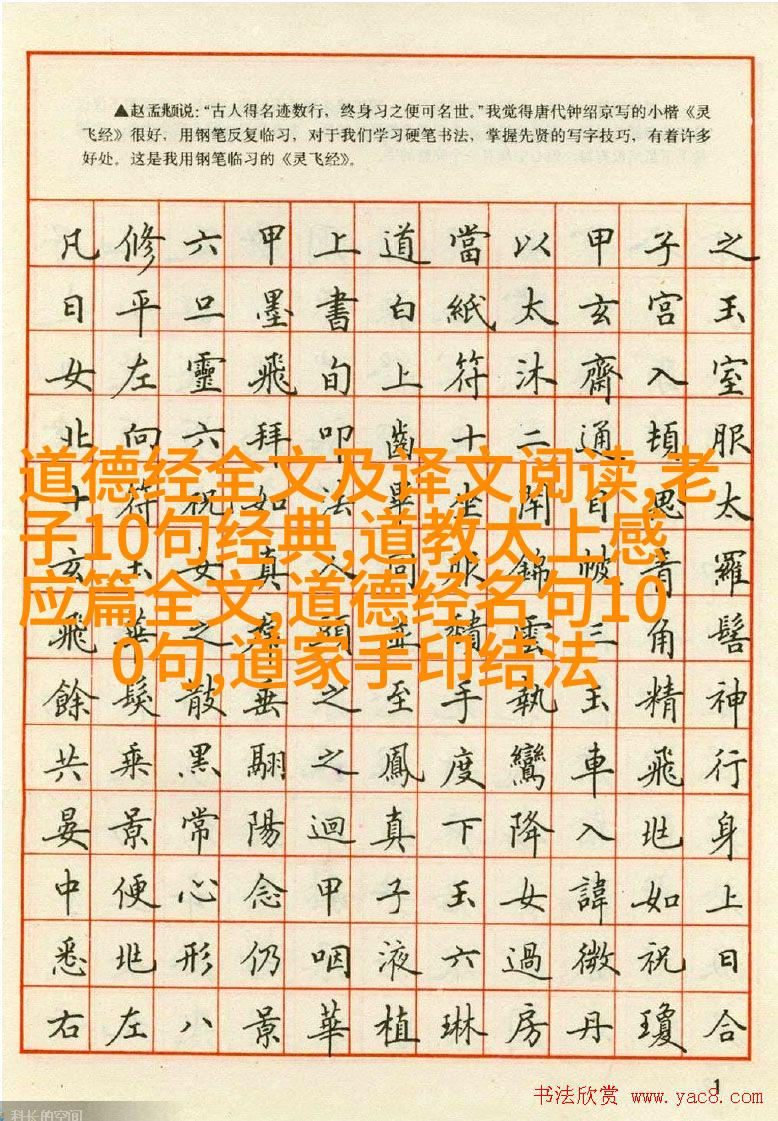 ▲赵孟頫说：“古人得名迹数行，终身习之便可名世。”我觉得唐代钟绍京写的小楷《灵
飞经》很好，用钢笔反复临习，对于我们学习硬笔书法，掌握先贤的写字技巧，有着许多
好处。这是我用钢笔临习的《灵飞经》。
凡修六甲上道當以甲子之
日平旦墨書白紙太玄宮玉
女左靈飛旬上符沐齋入室
北向六拜叩齒十二通頓服
十符祝如法畢坐閉目思太
玄玉女真人同服錦帔青羅
飛華之裙頭並頹雲三角髻
餘髮散垂之至手執玉精神
共乘黑翮之鳳度鸞車飛行
晏景常陽迴真下降入兆身
中便心念甲子玉女諱如上
悉兆形仍咽液六過微祝曰
右左八景華植琳房丹瓊合
道德经全文及译文阅读,老
子10句经典,道教太上感
应篇全文,道德经名句10
0句,道家手印结法
1
书法欣赏 www.yac8.com
科长的空间